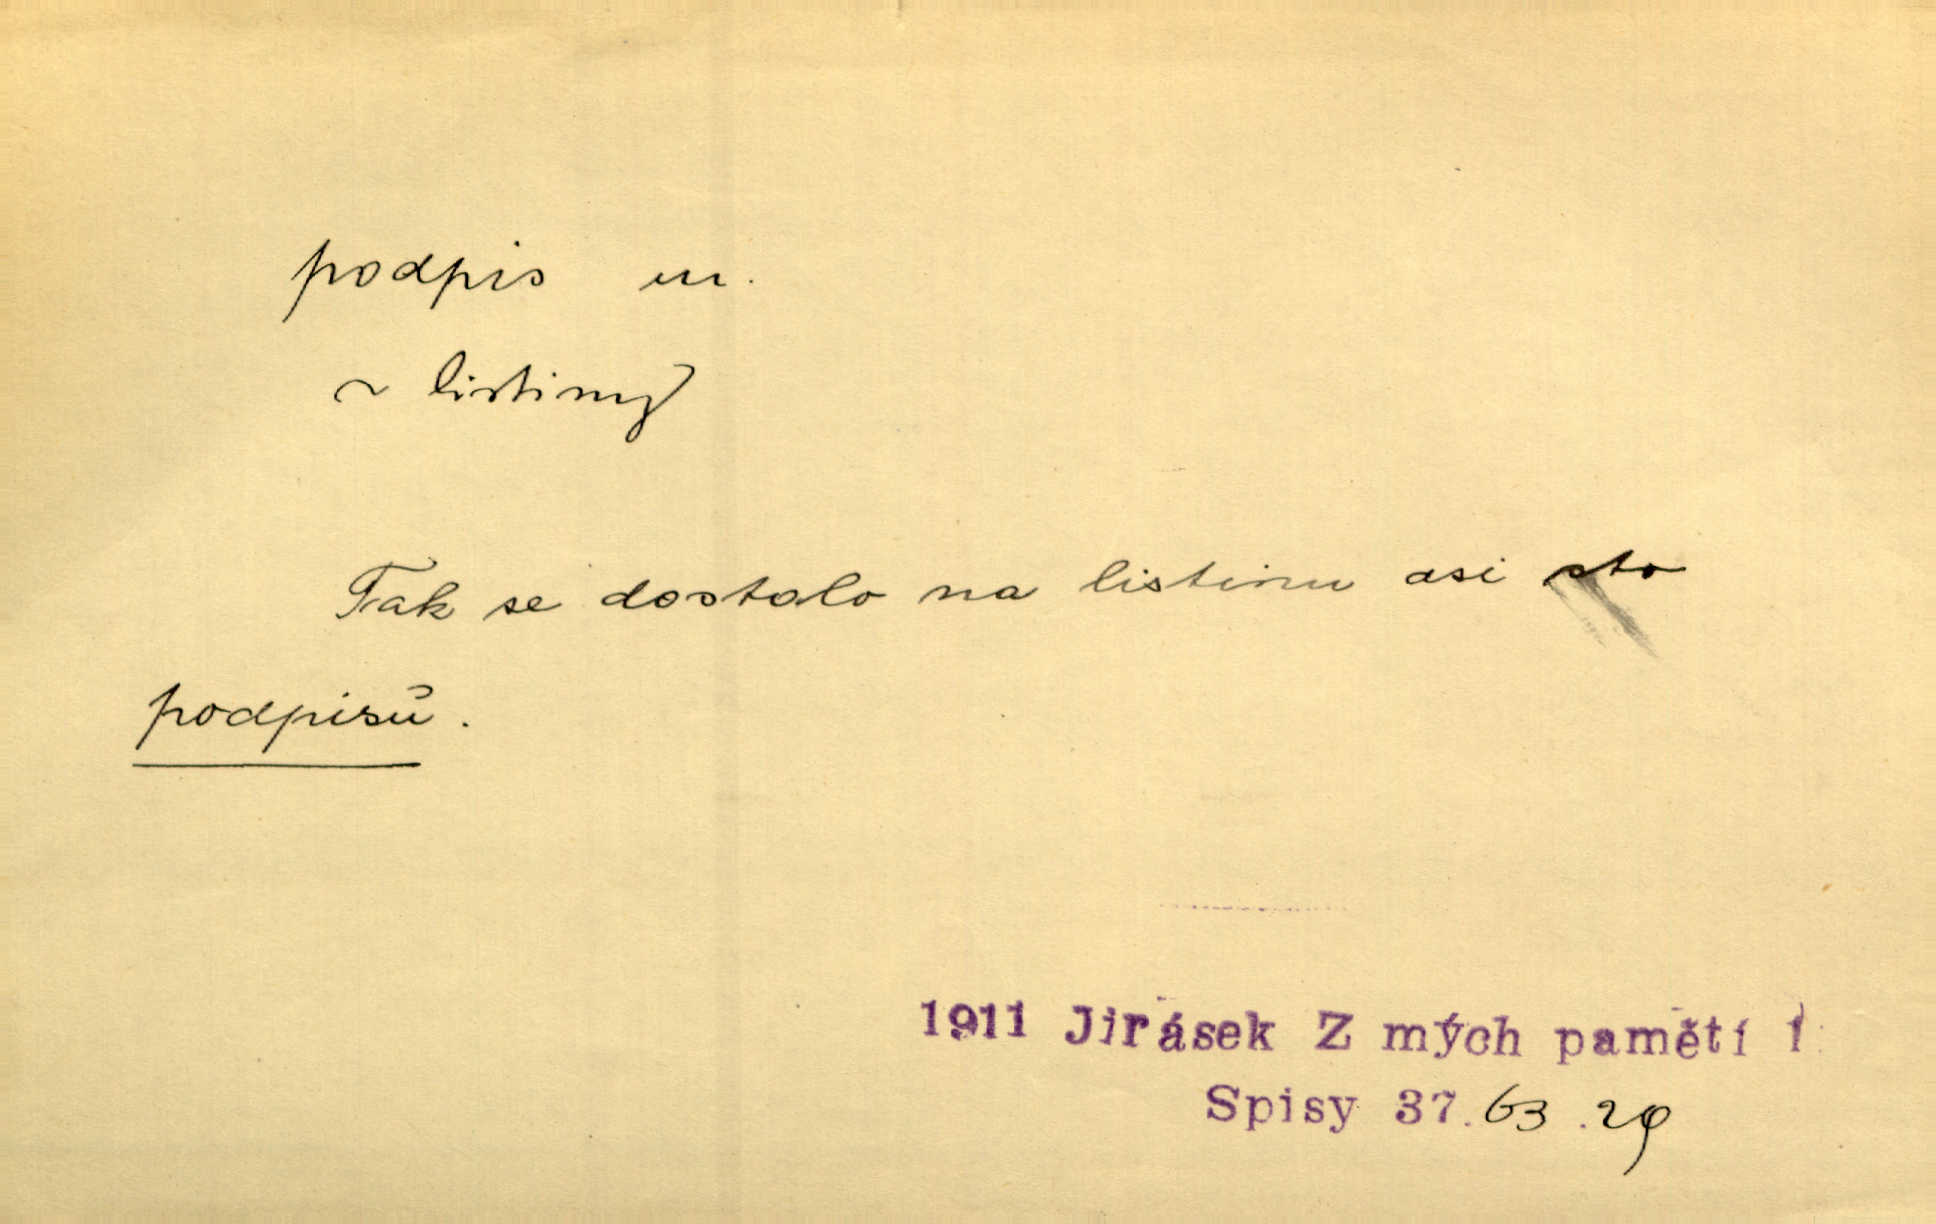 podpis m.
~ listiny
Tak se dostalo na listinu asi sto
podpisů.
1911 Jirásek Z mých pamětí 1
Spisy 37. 63 . 29